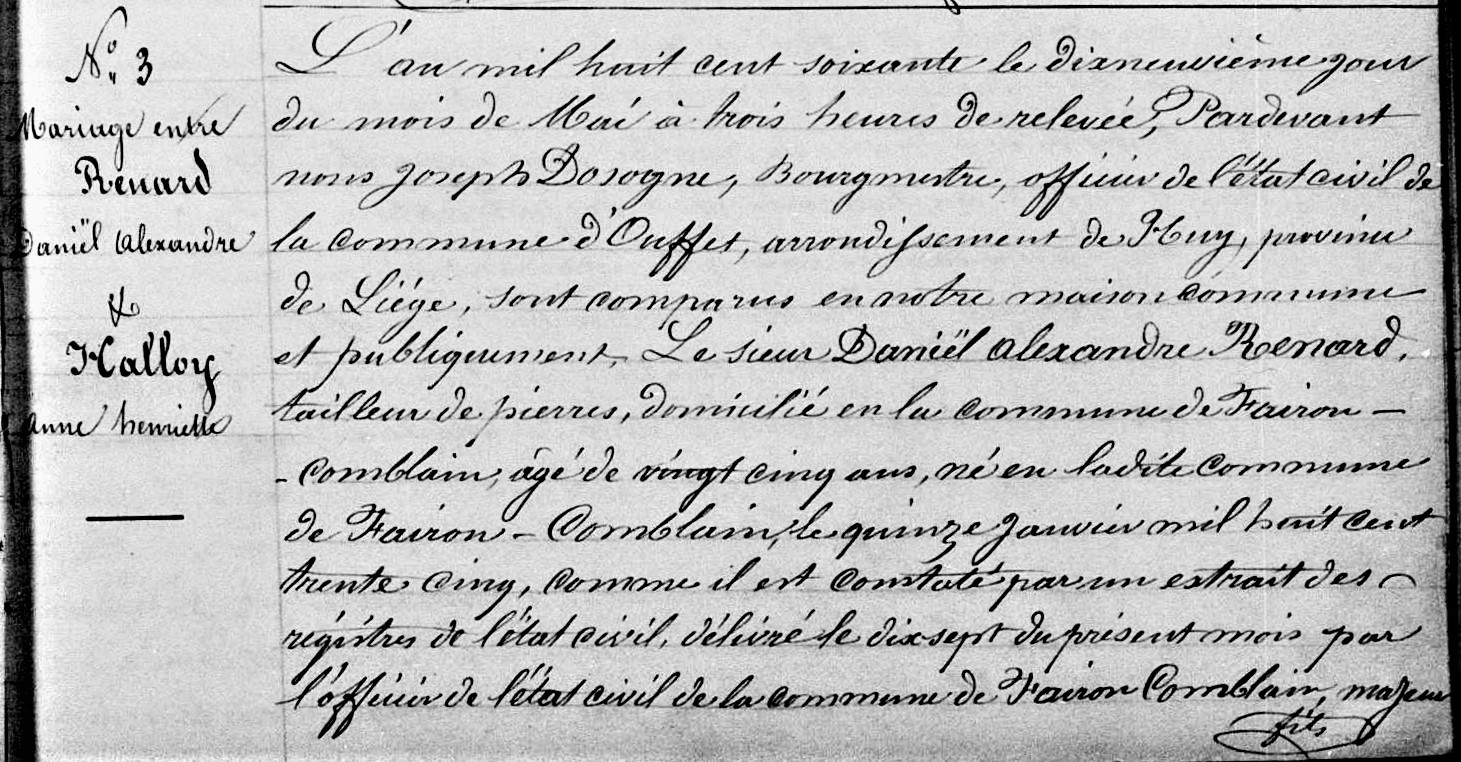 N.º 3
Mariage entre
Renard
Daniël Alexandre
&
Halloy
Anne henriette
L'an mil huit cent soixante le dixneuvième jour
du mois de Mai à trois heures de relevée, Pardevant
nous Joseph Dosogne, Bourgmestre, officier de l'état civil de
la commune d'Ouffet, arrondissement de Huy, province
de Liége, sont comparus en notre maison commune
et publiquement, Le sieur Daniël Alexandre Renard,
tailleur de pierres, domicilié en la commune de Fairon -
- Comblain, âgé de vingt cinq ans, né en ladite commune
de Fairon - Comblain, le quinze Janvier mil huit cent
trente cinq, comme il est constaté par un extrait des
régistres de l'état civil, délivré le dix sept du présent mois par
l'officier de l'état civil de la commune de Fairon Comblain, majeur
fils